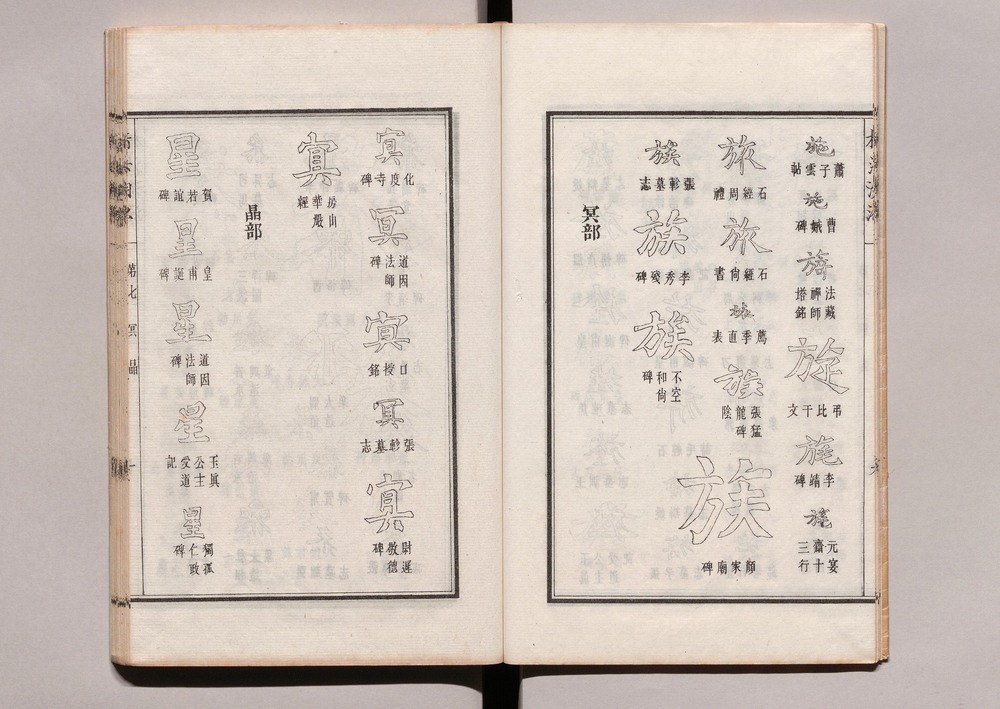 施
蕭子雲帖
施
曹娥碑
旅
法藏禪師塔銘
旌
弔比干文
旄
李靖碑
旄
元宴齋十三行
旅
石經周禮
旅
石經尙書
旅
薦季直表
族
張猛龍碑陰
族
顏家廟碑
族
張軫墓志
族
李秀殘碑
族
不空和尙碑
冥部
冥
化度寺碑
冥
道因法師碑
冥
口授銘
冥
張軫墓志
冥
尉遲敬德碑
冥
房山華嚴經
晶部
星
賀若誼碑
星
皇甫誕碑
星
道因法師碑
星
玉眞公主受道記
星
獨孤仁政碑
第七 冥 晶